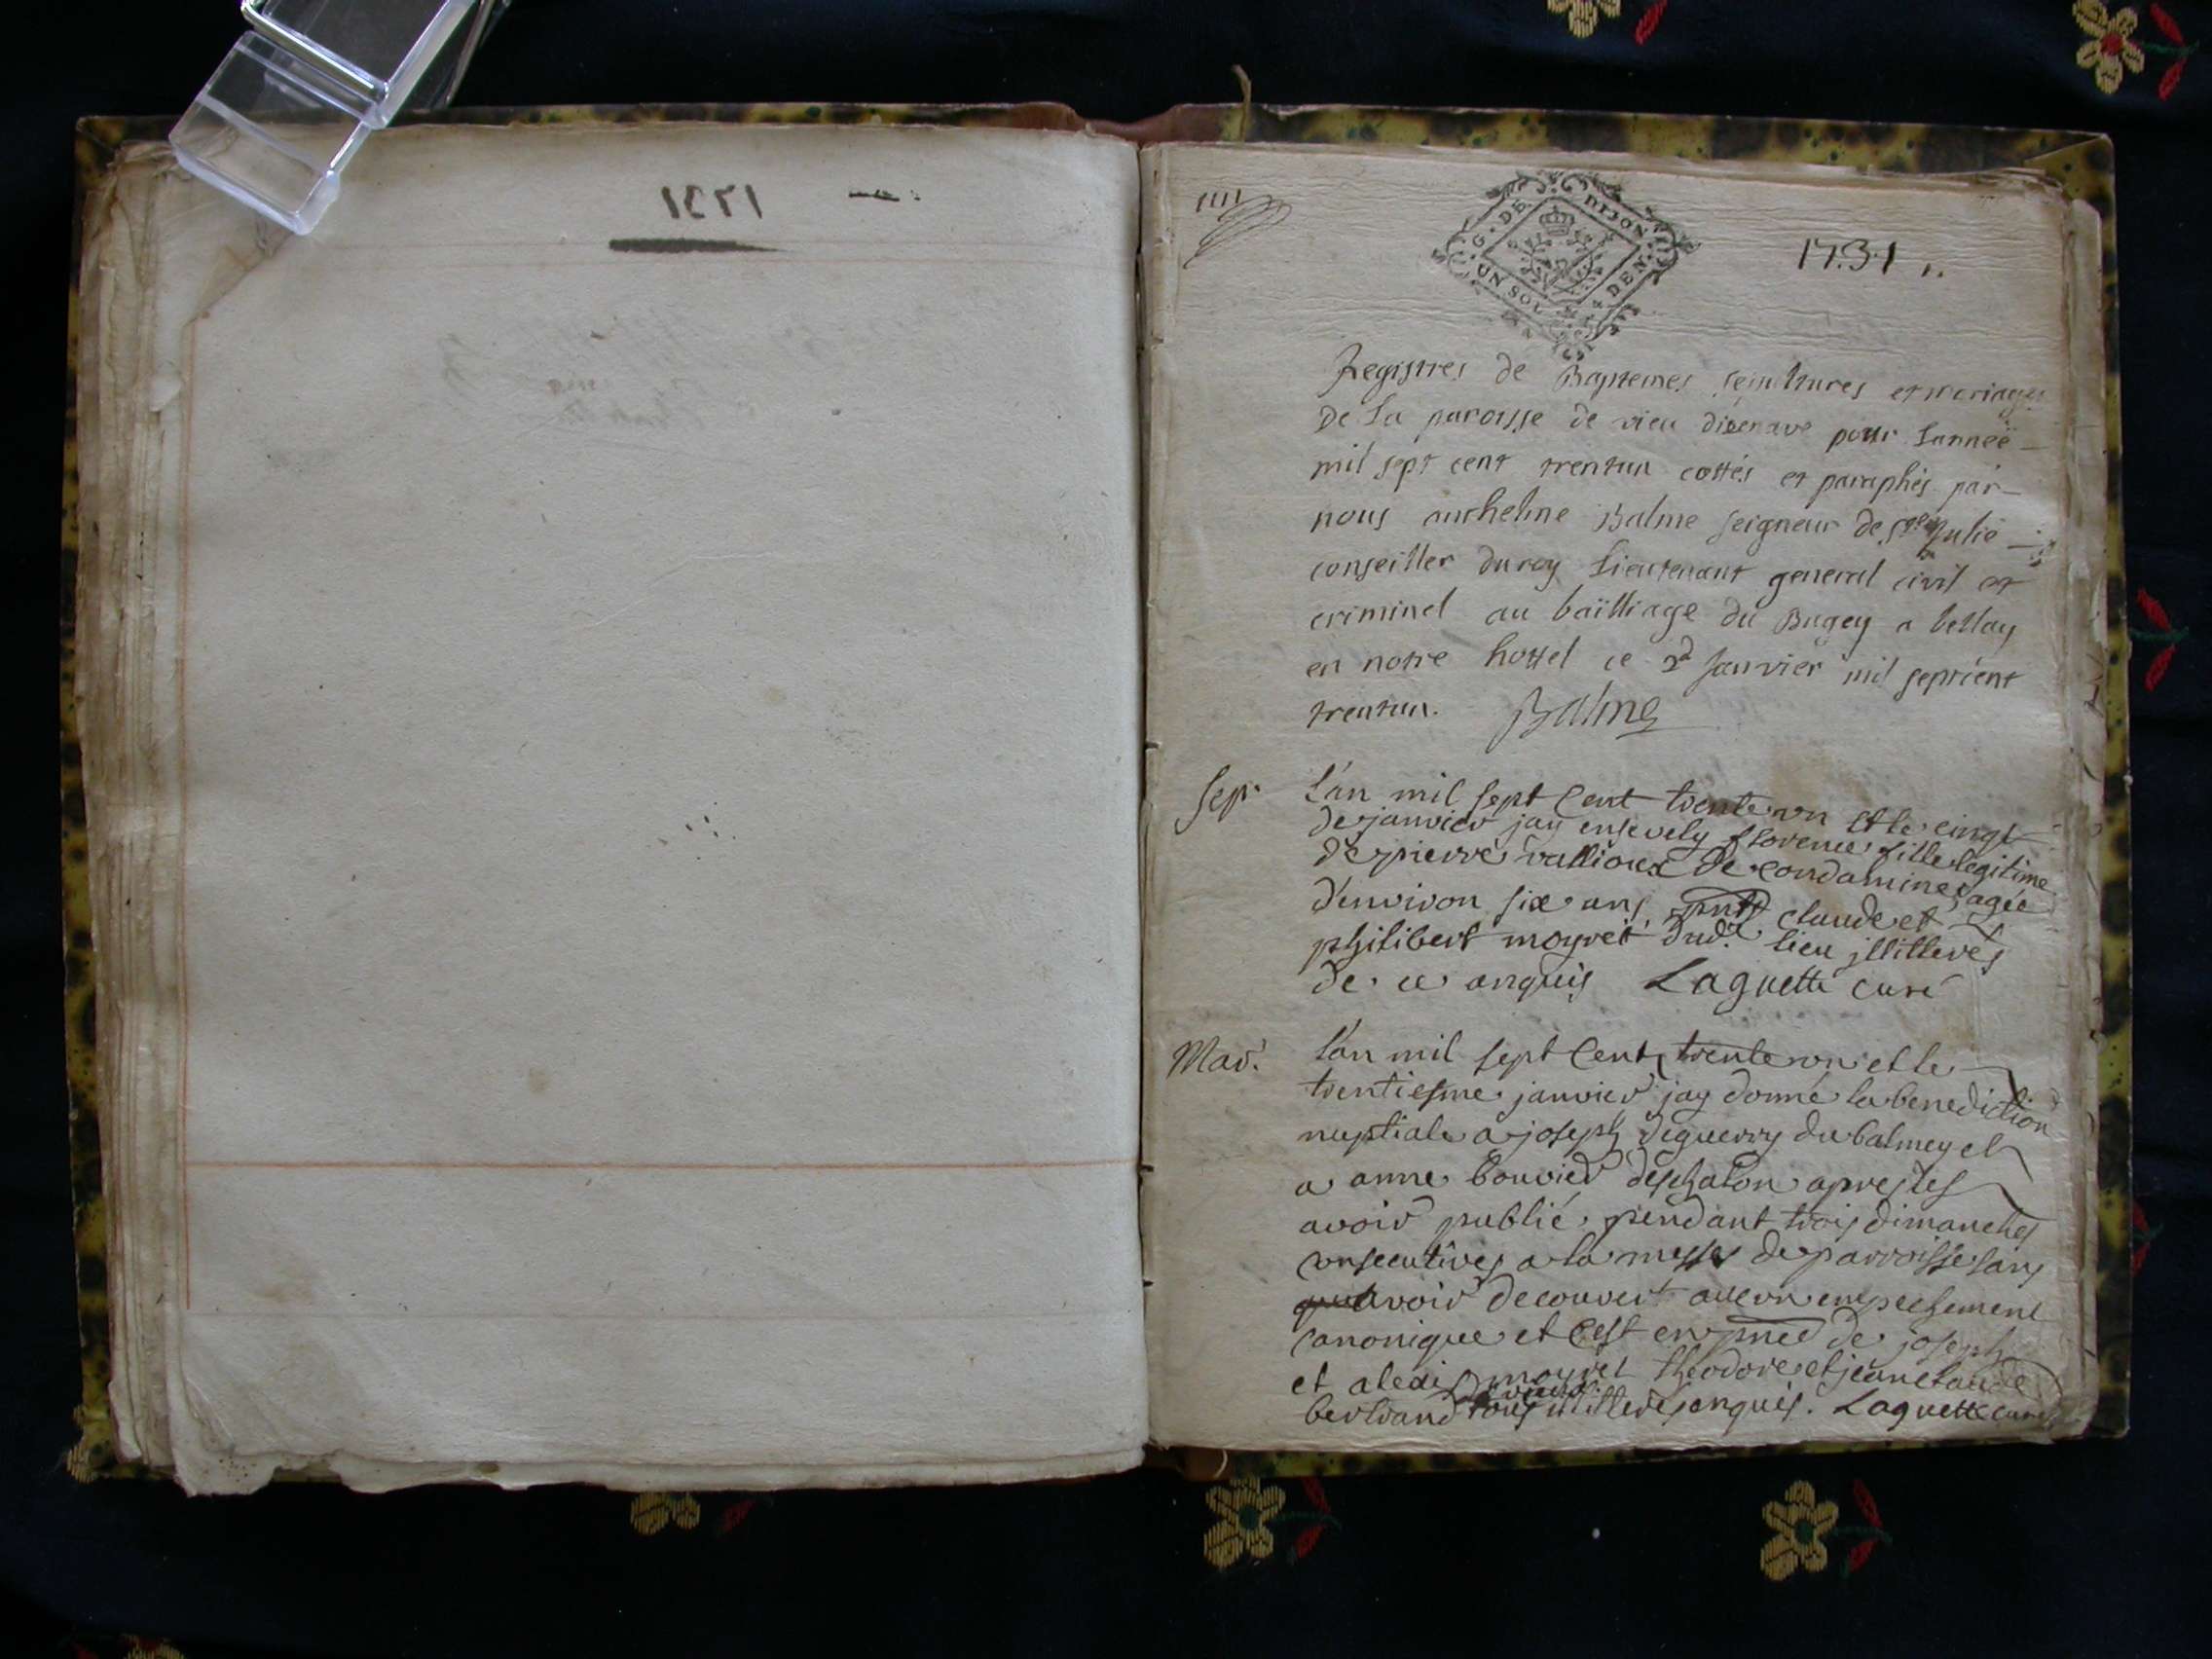 1731
1731
G. DE DIJON
UN SOL 4 DEN.
Registres de Baptemes sepultures et mariages
de la paroisse de vieu disenave pour lannee
mil sept cent trentun cottés et paraphés par
nous Balme seigneur de Ste Julie
conseiller du roy Lieutenant general civil et
criminel au bailliage du Bugey a bellay
en notre hottel ce 2d Janvier mil septcent
trentun. Balme
Sep.
L'an mil sept Cent trente un et le cinq
de janvier jay ensevely florence fille legitime
de pierre vallioux de condamine, agée
d'environ six ans, pnts claude et
philibert moyret dud. lieu jllitterés
de ce enquis Laguette curé
Mar.
L'an mil sept Cent trente un et le
trentiesme janvier jay donné la benediction
nuptiale a joseph deguerry du balmey et
a anne bouvier deschalon apres les
avoir publié pendant trois dimanches
consecutives a la messe de parroisse sans
avoir decouvert aucun empechement
canonique et c'est en pnce de joseph
et alexis moyret theodore et jean claude
bertrand tous illitterés enquis. Laguette curé